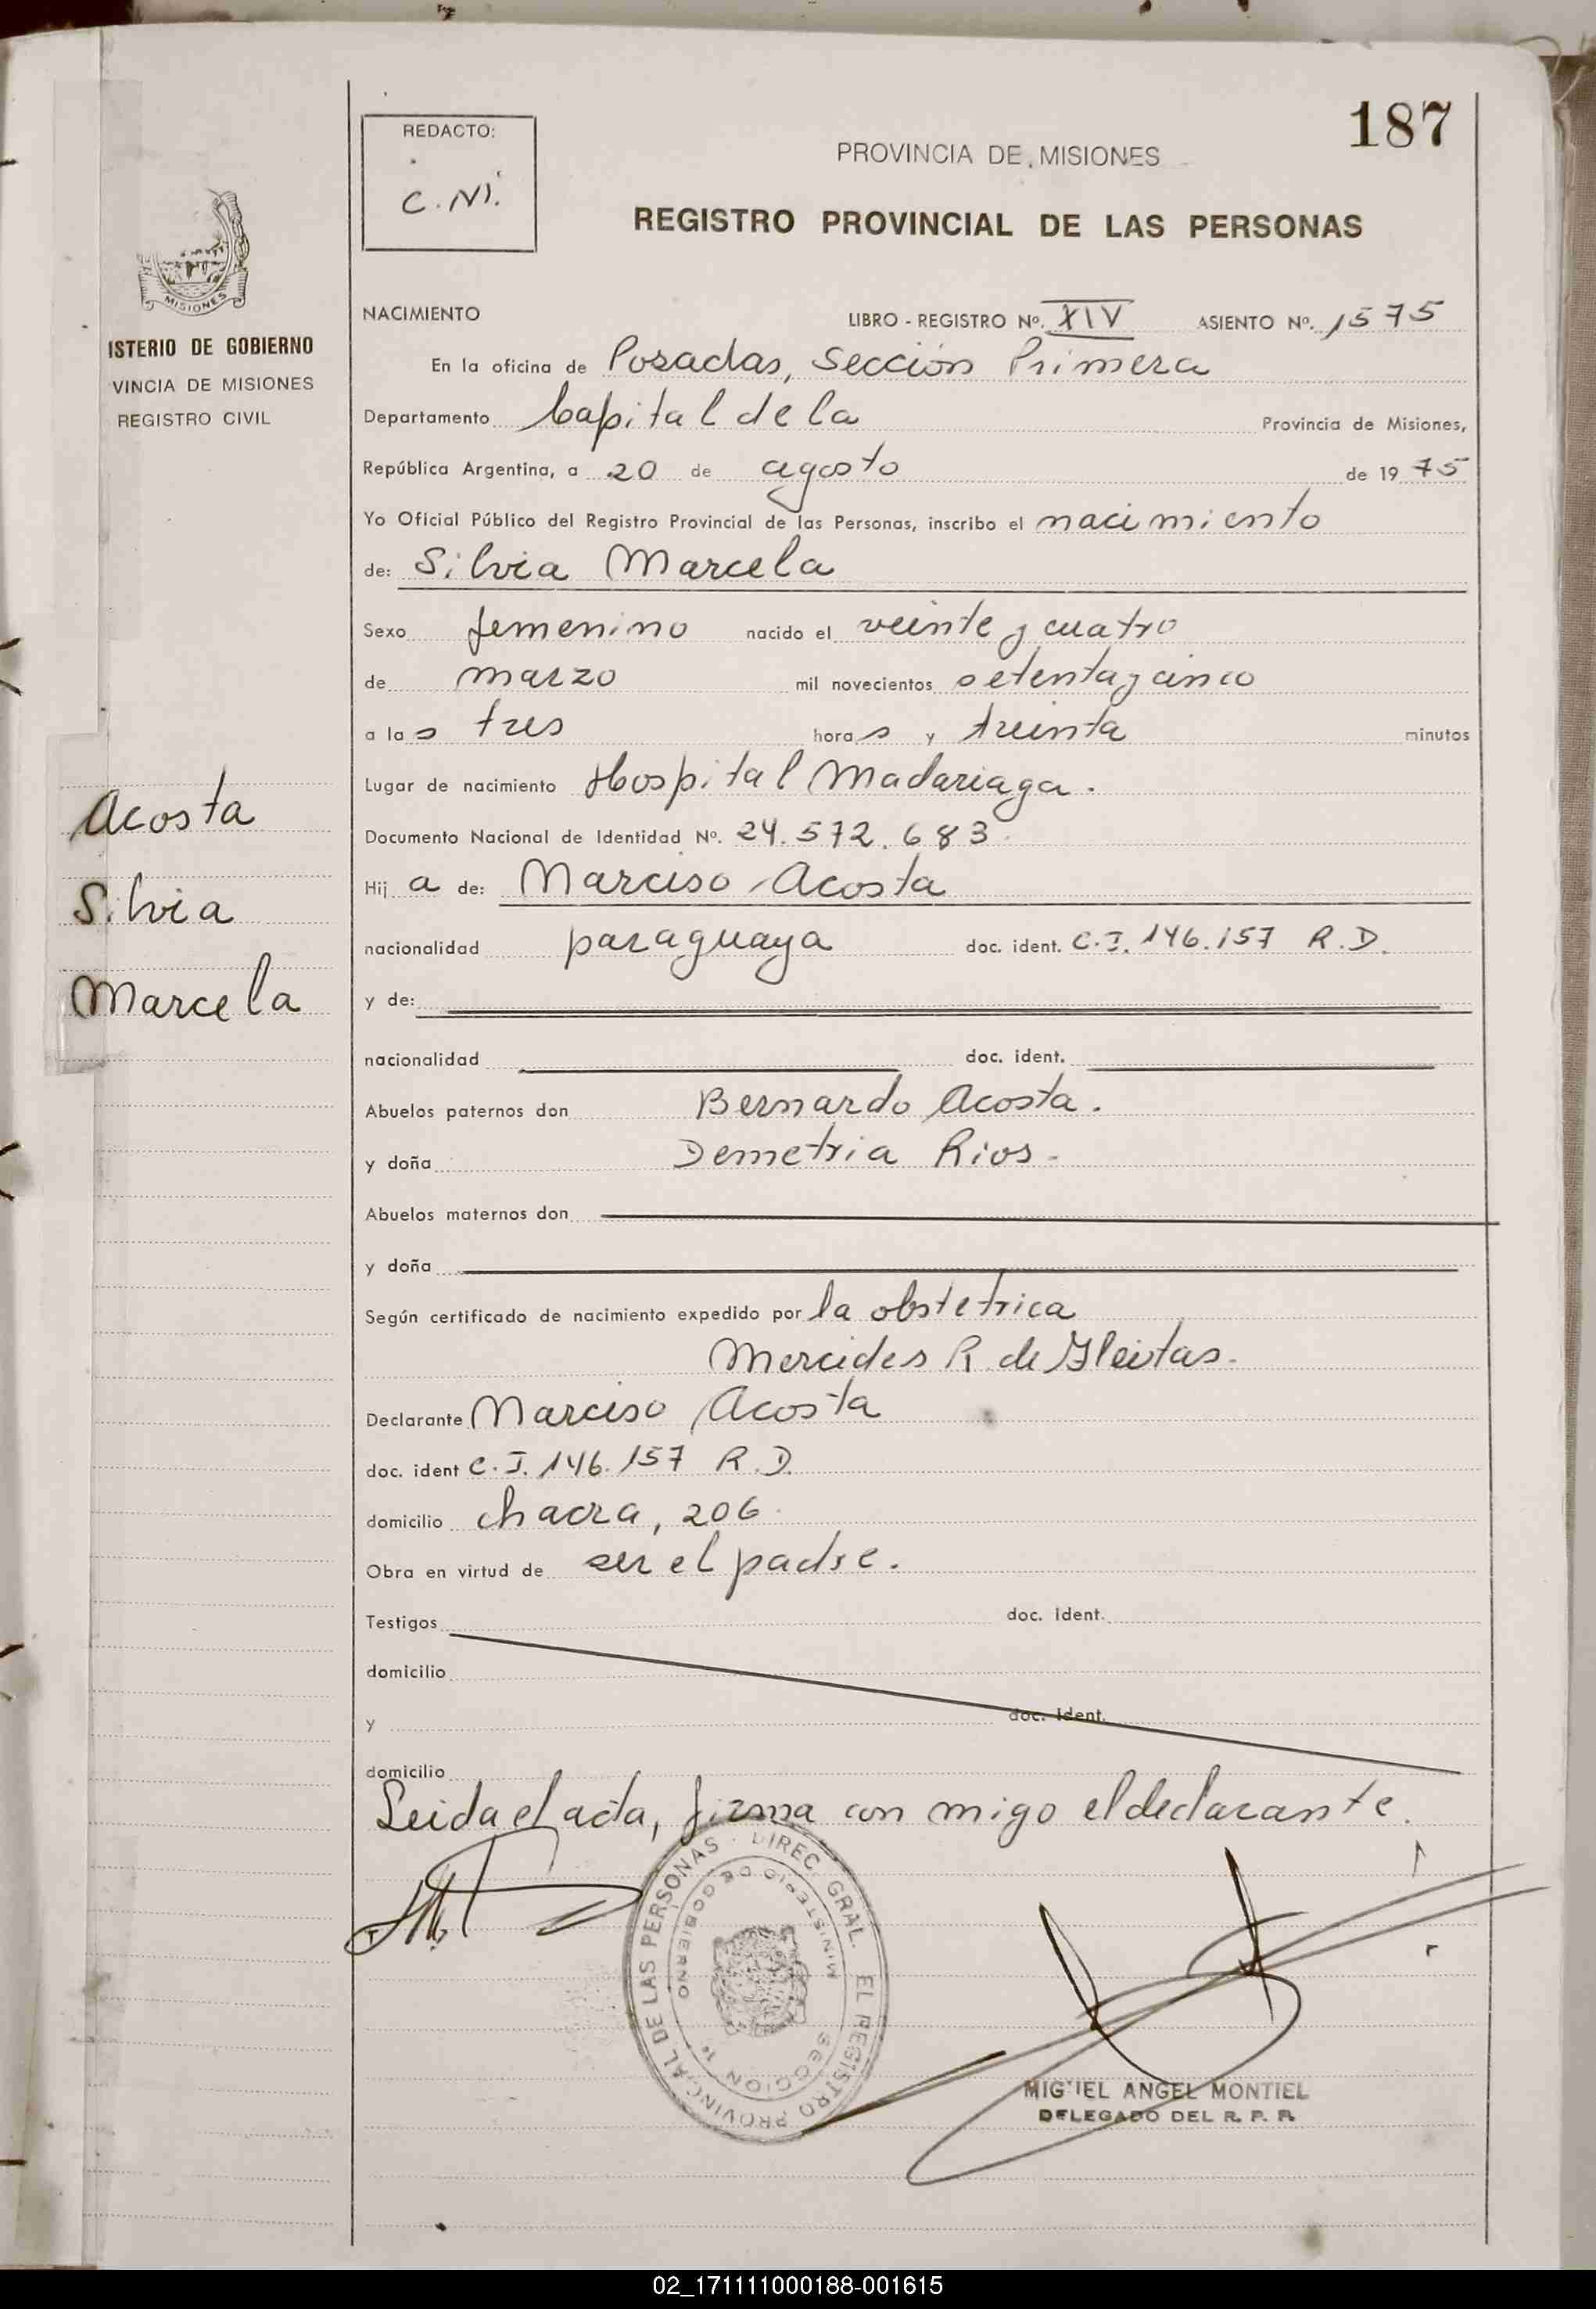 187
REDACTO:
C. Ni.
PROVINCIA DE MISIONES
REGISTRO PROVINCIAL DE LAS PERSONAS
MISIONES
ISTERIO DE GOBIERNO
VINCIA DE MISIONES
REGISTRO CIVIL
NACIMIENTO LIBRO - REGISTRO Nº. XIV ASIENTO Nº. 1575
En la oficina de Posadas, Sección Primera
Departamento Capital de la Provincia de Misiones,
República Argentina, a 20 de agosto de 1975
Yo Oficial Público del Registro Provincial de las Personas, inscribo el nacimiento
de: Silvia Marcela
Sexo femenino nacido el veinte y cuatro
de marzo mil novecientos setenta y cinco
a las tres horas y treinta minutos
Lugar de nacimiento Hospital Madariaga.
Acosta
Silvia
Marcela
Documento Nacional de Identidad Nº. 24.572.683
Hija de: Narciso Acosta
nacionalidad paraguaya doc. ident. C.I. 146.157 R.D.
y de:
nacionalidad doc. ident.
Abuelos paternos don Bernardo Acosta.
y doña Demetria Rios.
Abuelos maternos don
y doña
Según certificado de nacimiento expedido por la obstetrica
Mercides R. de Gleitas.
Declarante Narciso Acosta
doc. ident C.I. 146.157 R.D.
domicilio chacra, 206
Obra en virtud de ser el padre.
Testigos doc. ident.
domicilio
y doc. ident.
domicilio
Leida el acta, firma con migo el declarante.
DIREC. GRAL. EL REGISTRO PROVINCIAL DE LAS PERSONAS
MINISTERIO DE GOBIERNO
SECCION 1ª
MIGUEL ANGEL MONTIEL
DELEGADO DEL R. P. P.
02_171111000188-001615